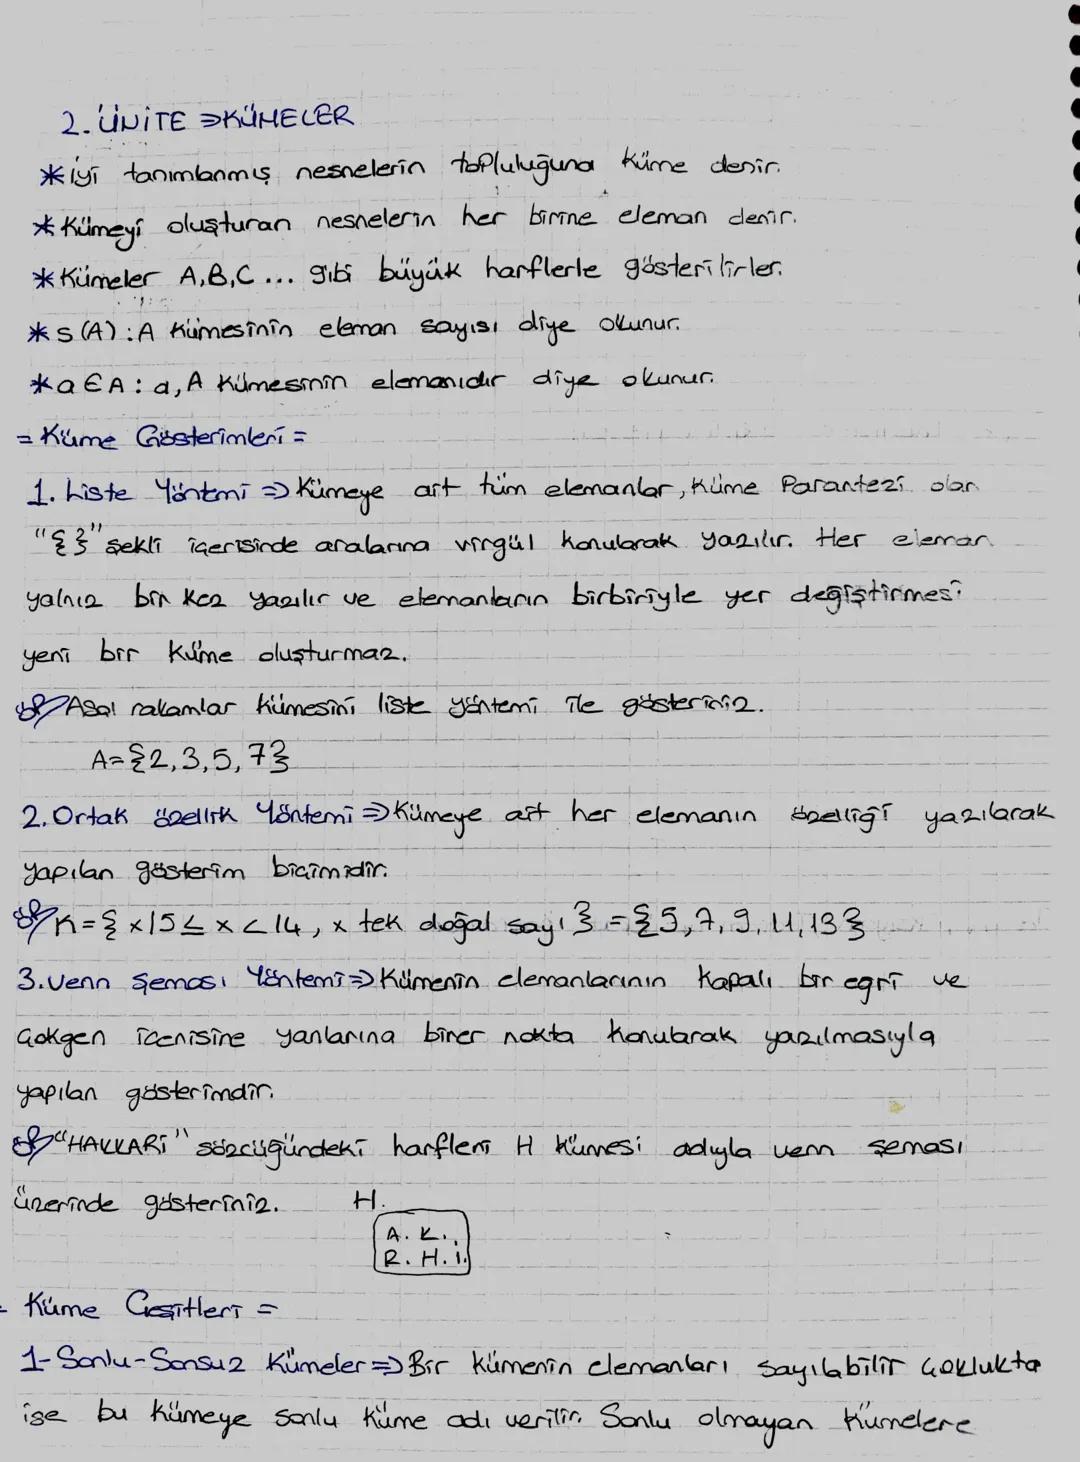 2. ÜNİTE ⇒ KÜMELER
* İyi tanımlanmış nesnelerin topluluğuna küme denir.
* Kümeyi oluşturan nesnelerin her birine eleman denir.
* Kümeler A,B,C ... gibi büyük harflerle gösterilirler.
* s(A) : A kümesinin eleman sayısı diye okunur.
* a ∈ A : a, A kümesinin elemanıdır diye okunur.
= Küme Gösterimleri =
1. Liste Yöntemi ⇒ Kümeye ait tüm elemanlar, küme Parantezi olan
"{ }" şekli içerisinde aralarına virgül konularak yazılır. Her eleman
yalnız bir kez yazılır ve elemanların birbiriyle yer değiştirmesi
yeni bir küme oluşturmaz.
Asal rakamlar kümesini liste yöntemi ile gösteriniz.
A={2,3,5,7}
2. Ortak özellik Yöntemi ⇒ Kümeye ait her elemanın özelliği yazılarak
yapılan gösterim biçimidir.
K = { x|5 ≤ x < 14, x tek doğal sayı } = {5,7,9,11,13}
3. Venn Şeması Yöntemi ⇒ Kümenin elemanlarının kapalı bir egri ve
çokgen icerisine yanlarına birer nokta konularak yazılmasıyla
yapılan gösterimdir.
"HAKKARİ" sözcüğündeki harfleri H kümesi adıyla venn şeması
üzerinde gösteriniz. H.
A. K.
R. H. İ.
= Küme Çeşitleri =
1- Sonlu-Sonsuz Kümeler ⇒ Bir kümenin elemanları sayılabilir çoklukta
ise bu kümeye sonlu küme adı verilir. Sonlu olmayan kümelere